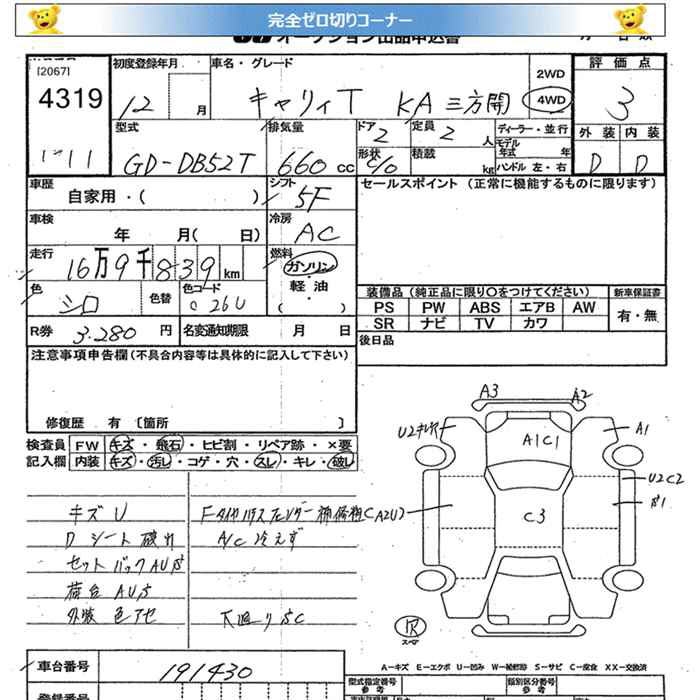 完全ゼロ切りコーナー
オークション出品申込書
[2067]
4319
初度登録年月
12 月
車名・グレード
キャリィT KA 三方開
2WD
4WD
評価点
3
外装 内装
D D
型式
GD-DB52T
排気量
660 cc
ドア
2
定員
2 人
形状
c/o
積載
kg
ディーラー・並行
モデル年式 年
ハンドル 左・右
車歴
自家用・( )
シフト
5F
セールスポイント (正常に機能するものに限ります)
車検
年 月( 日)
冷房
AC
走行
16万9千839km
燃料
ガソリン
軽油
( )
色
シロ
色替
色コード
C 26U
装備品(純正品に限り〇をつけてください)
新車保証書
PS PW ABS エアB AW
SR ナビ TV カワ
有・無
R券 3.280 円
名変通知期限 月 日
後日品
注意事項申告欄(不具合内容等は具体的に記入して下さい)
修復歴 有 [箇所 ]
検査員
記入欄
FW キズ・飛石・ヒビ割・リペア跡・×要
内装 キズ・汚し・コゲ・穴・スレ・キレ・破レ
キズU
Dシート破れ
セットバックAUS
荷台AUS
外装 色アセ
A/C 冷えず
下廻りSC
A3
A2
A1
A1C1
U2C2
C3
(A2U)
車台番号
191430
登録番号
A―キズ E―エクボ U―凹み W―補修跡 S―サビ C―腐食 XX―交換済
型式指定番号
参考
類別区分番号
参考